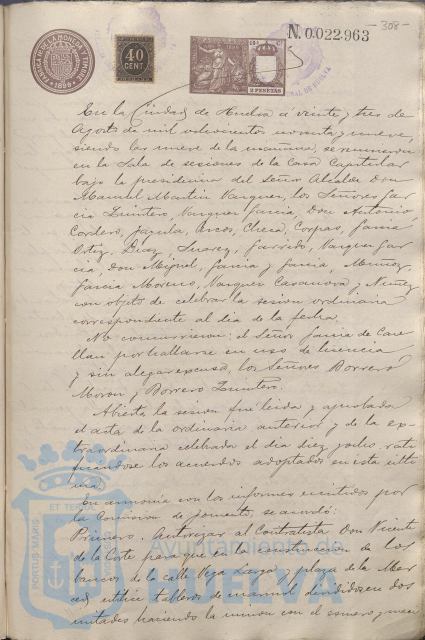 -308-
N. 0.022.963
FABRICA DE LA MONEDA Y TIMBRE
1899
40
CENT.
2 PESETAS
En la Ciudad de Huelva a veinte y tres de
Agosto de mil ochocientos noventa y nueve,
siendo las nueve de la mañana, se reunieron
en la Sala de sesiones de la Casa Capitular
bajo la presidencia del Señor Alcalde Don
Manuel Martin Vazquez, los Señores Gar
cia Quintero, Vazquez Garcia, Don Antonio
Cordero, Arcos, Checa, Corpas, Gama
Ortiz, Diaz, Suarez, Garrido, Vazquez Gar
cia, Don Miguel, Garcia y Garcia, Muñoz,
Garcia Moreno, Vazquez Casanova y Nuñez
con objeto de celebrar la sesion ordinaria
correspondiente al dia de la fecha.
No concurrieron: el Señor Garcia de Cas
llan por hallarse en uso de licencia
y sin alegar excusa, los Señores Borrero
Moron y Borrero Quintero.
Abierta la sesion fué leida y aprobada
el acta de la ordinaria anterior y de la ex-
traordinaria celebrada el dia diez y ocho, rati
ficandose los acuerdos adoptados en esta ulti
ma.
En armonia con los informes emitidos por
la Comision de fomento, se acordó:
Primero. Autorizar al Contratista Don Vicente
de la Corte para que en la construccion de los
bancos de la calle Vega Larga y plaza de la Mer
ced utilice tableros de marmol divididos en dos
mitades haciendo la union con el esmero y nece
PORTUS MARIS
ET TERRAE
Ayuntamiento de
HUELVA